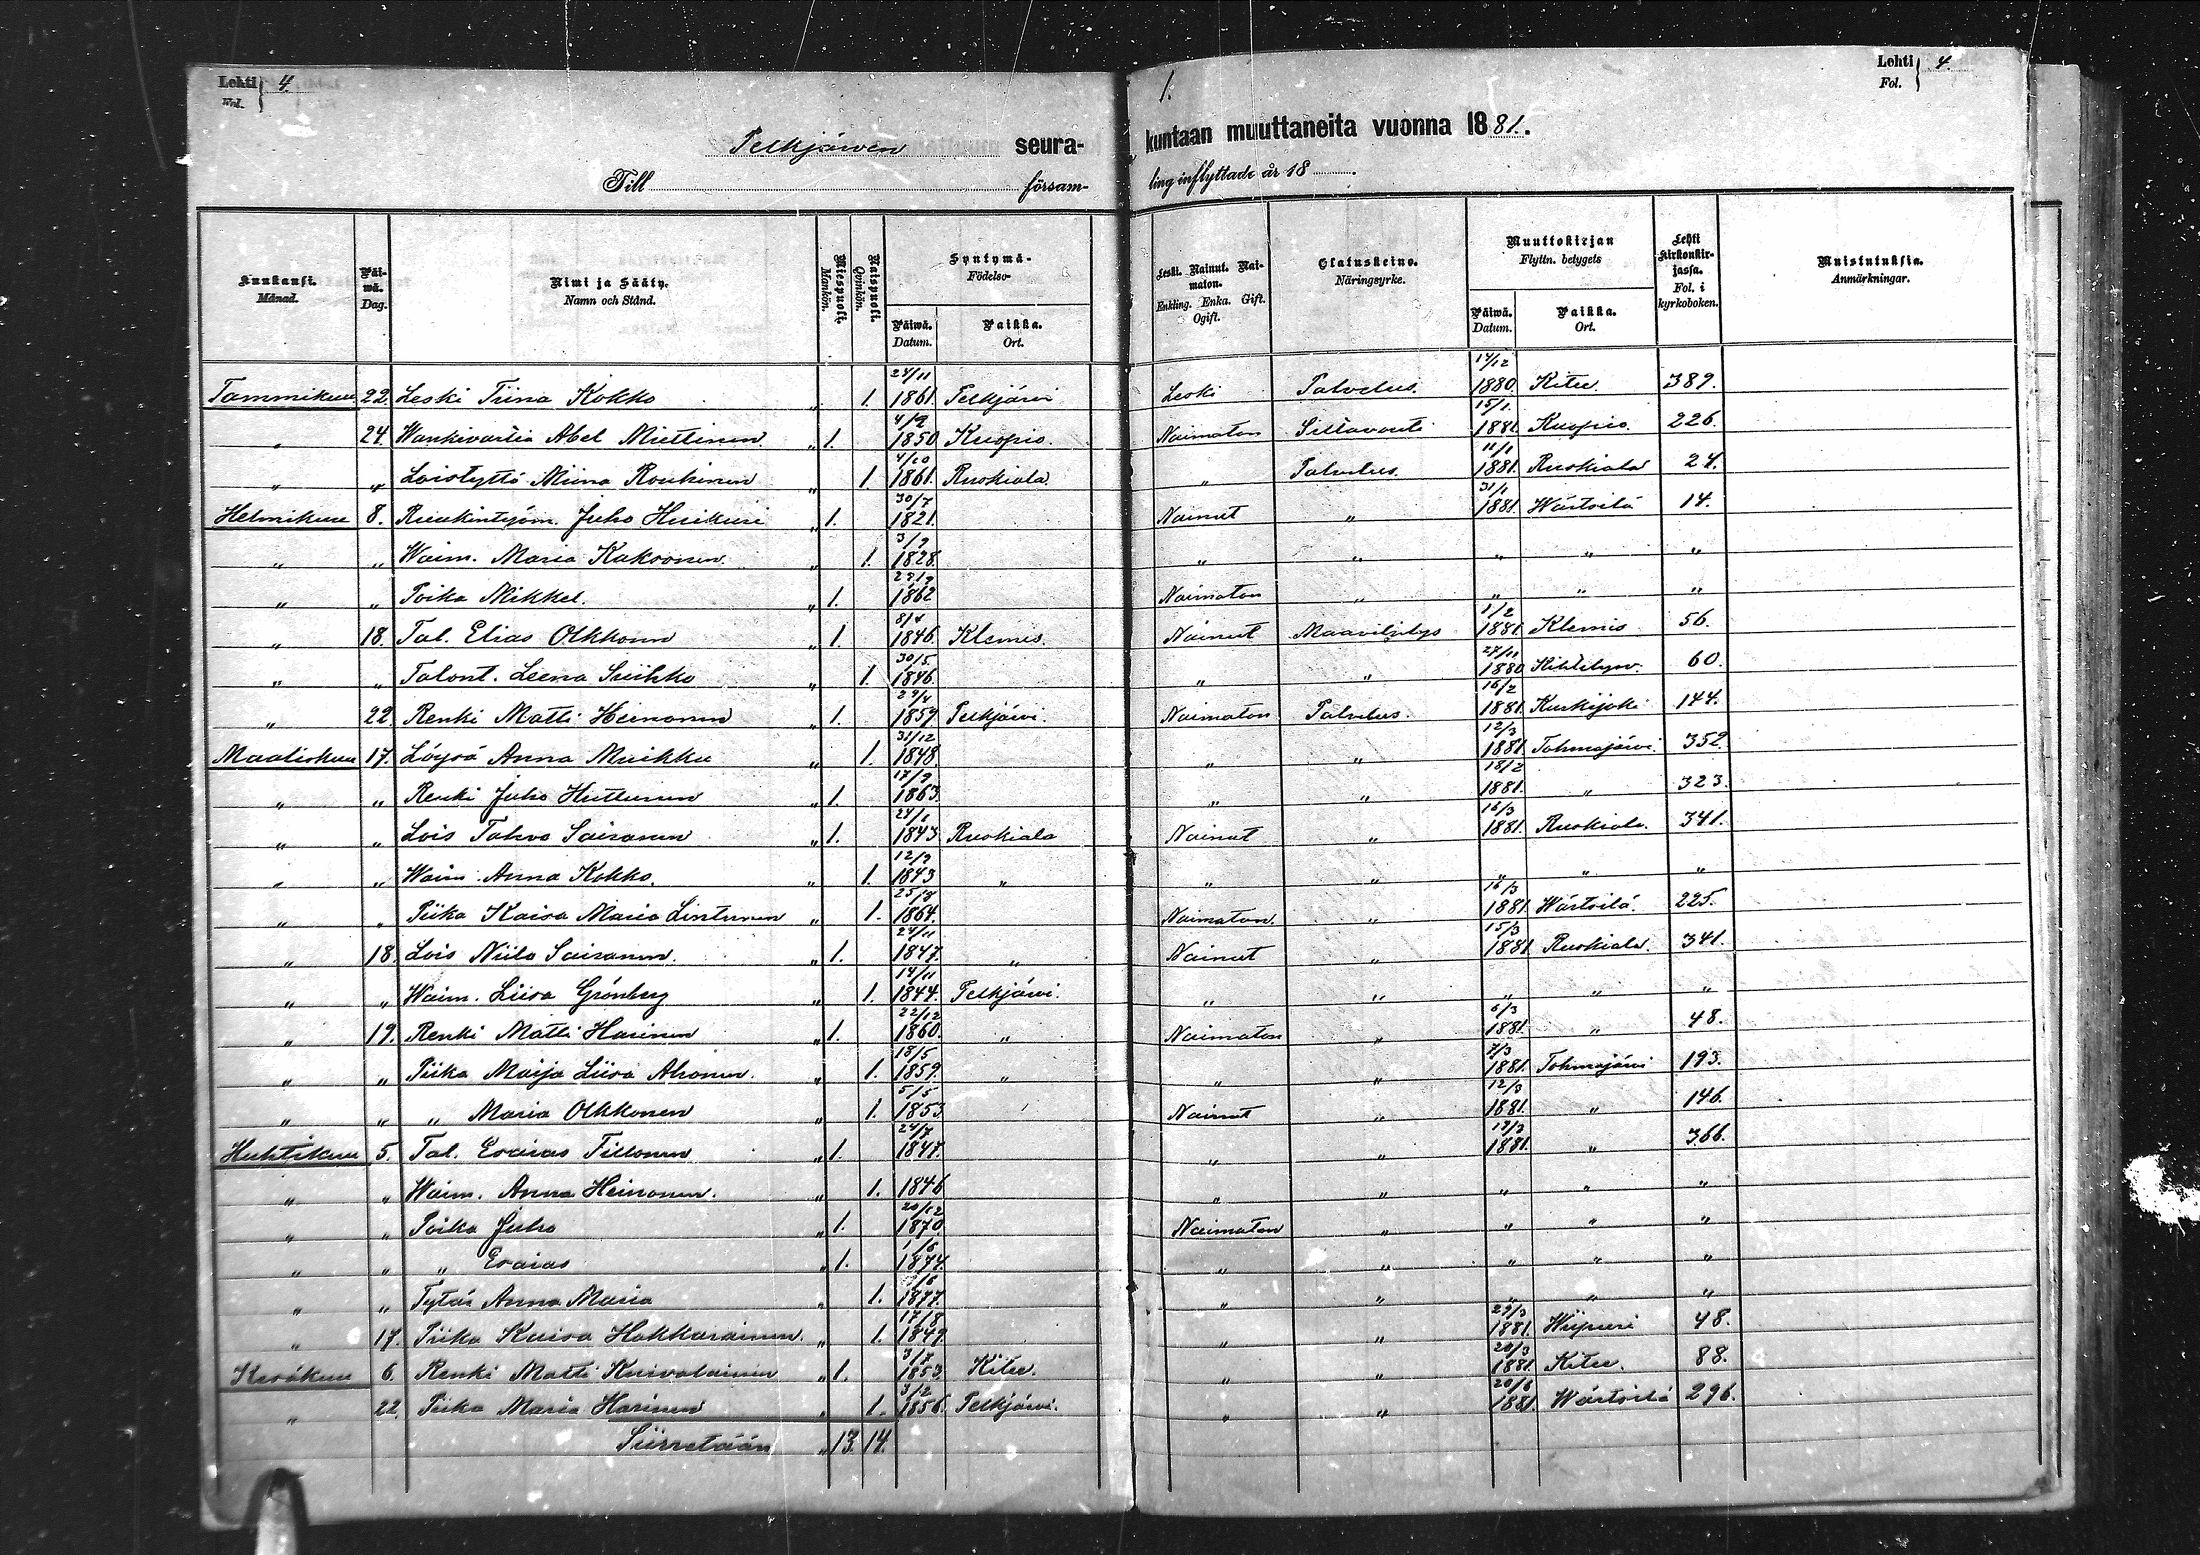 Lehti 4. 1. Lehti 4.
Fol. Fol.
Pelkjärven seura- kuntaan muuttaneita vuonna 1881.
Till försam- ling inflyttade år 18
Kuukausi. Månad. Päi-wä. Dag. Nimi ja Sääty. Namn och Stånd. Miespuoli. Mankön. Naispuoli. Qvinkön. Syntymä- Födelse- Päiwä. Datum. Paikka. Ort. Leski. Nainut. Nai-maton. Enkling. Enka. Gift. Ogift. Elatuskeino. Näringsyrke. Muuttokirjan Flyttn. betygets Päiwä. Datum. Paikka. Ort. Lehti kirkonkir-jassa. Fol. i kyrkoboken. Muistutuksia. Anmärkningar.
Tammikuu 22. Leski Tiina Kokko „ 1. 24/11 1861. Pelkjärvi Leski Palvelus. 14/12 1880. Kitee 389.
„ 24. Wankivartia Abel Miettinen „ 1. 4/9 1850. Kuopio. Naimaton Siltavouti 15/1. 1881. Kuopio. 226.
„ „ Loistyttö Miina Roukinen „ 1. 4/10 1861. Ruskiala. „ Palvelus. 11/1 1881. Ruskiala 24.
Helmikuu 8. Ruukintyöm. Juho Huikuri „ 1. 30/7 1821. Nainut „ 31/1 1881. Wärtsilä 14.
„ „ Waim. Maria Kakoonen. „ 1. 3/9 1828. „ „ „ „
„ „ Poika Mikkel. „ 1. 29/9 1862 Naimaton „ „ „ „
„ 18. Tal. Elias Olkkonen „ 1. 8/4 1846. Klemis. Nainut Maaviljelys 1/2 1881. Klemis 56.
„ „ Talont. Leena Suihko „ 1. 30/5 1846. „ „ 27/11 1880. Kihtelysv. 60.
„ 22. Renki Matti Heinonen „ 1. 29/4 1859. Pelkjärvi. Naimaton Palvelus. 16/2 1881. Kurkijoki 144.
Maaliskuu 17. Löysä Anna Muikku „ 1. 31/12 1848. „ „ 12/3 1881. Tohmajärvi. 352.
„ „ Renki Juho Huttunen „ 1. 17/9 1863. „ „ 18/2 1881. „ 323.
„ „ Lois Tahvo Sairanen „ 1. 24/1 1843 Ruskiala Nainut „ 16/3 1881. Ruskiala. 341.
„ „ Waim. Anna Kokko. „ 1. 12/9 1843 „ „ „ „ „ „
„ „ Piika Kaisa Maria Lintunen „ 1. 25/8 1864. Naimaton. „ 16/3 1881. Wärtsilä. 225.
„ 18. Lois Niilo Sairanen. „ 1. 24/11 1847. „ Nainut „ 15/3 1881. Ruskiala. 341.
„ „ Waim. Liisa Grönberg „ 1. 14/11 1844. Pelkjärvi. „ „ „ „ „
„ 19. Renki Matti Harinen „ 1. 22/12 1860. „ Naimaton „ 6/3 1881. „ 48.
„ „ Piika Maija Liisa Ahonen. „ 1. 18/5 1859. „ „ „ 7/3 1881. Tohmajärvi 193.
„ „ „ Maria Olkkonen „ 1. 5/5 1853. Nainut „ 12/3 1881. „ 146.
Huhtikuu 5. Tal. Esaias Tillonen „ 1. 24/7 1847. „ „ 19/3 1881. „ 366.
„ „ Waim. Anna Heinonen. „ 1. 1846 „ „ „ „ „
„ „ Poika Juho „ 1. 20/12 1870. Naimaton „ „ „ „
„ „ „ Esaias „ 1. 1874. „ „ „ „ „
„ „ Tytär Anna Maria „ 1. 1877. „ „ „ „ „
„ 17. Piika Kaisa Hakkarainen. „ 1. 17/8 1849. „ „ 29/3 1881. Wiipuri 48.
Kesäkuu 6. Renki Matti Kuivalainen „ 1. 3/7 1853. Kitee. „ „ 20/3 1881. Kitee. 88.
„ 22. Piika Maria Harinen „ 1. 3/2 1856. Pelkjärvi. „ „ 20/6 1881. Wärtsilä 296.
Siirretään „ 13. 14.